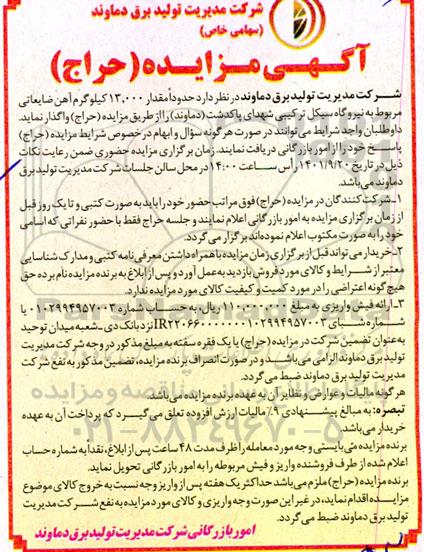 شرکت مدیریت تولید برق دماوند
(سهامی خاص)
آگهی مزایده (حراج)
شرکت مدیریت تولید برق دماوند در نظر دارد حدوداً مقدار ۱۳,۰۰۰ کیلوگرم آهن ضایعاتی
مربوط به نیروگاه سیکل ترکیبی شهدای پاکدشت (دماوند) را از طریق مزایده (حراج) واگذار نماید.
داوطلبان واجد شرایط می توانند در صورت هر گونه سؤال و ابهام در خصوص شرایط مزایده (حراج)
پاسخ خود را از امور بازرگانی دریافت نمایند. زمان برگزاری مزایده حضوری ضمن رعایت نکات
ذیل در تاریخ ۱۴۰۱/۹/۲۰ رأس ساعت ۱۴:۰۰ در محل سالن جلسات شرکت مدیریت تولید برق
دماوند می‌باشد.
۱-شرکت کنندگان در مزایده (حراج) فوق مراتب حضور خود را باید به صورت کتبی و تا یک روز قبل
از زمان برگزاری مزایده به امور بازرگانی اعلام نمایند و جلسه حراج فقط با حضور نفراتی که اسامی
خود را به صورت مکتوب اعلام نموده‌اند برگزار می گردد.
۲-خریدار می تواند قبل از برگزاری زمان مزایده با همراه داشتن معرفی نامه کتبی و مدارک شناسایی
معتبر از شرایط و کالای مورد فروش بازدید به عمل آورد و پس از ابلاغ به برنده مزایده نام برده حق
هیچ گونه اعتراضی را در مورد کمیت و کیفیت کالای مورد مزایده ندارد.
۳-ارائه فیش واریزی به مبلغ ۱۱۰,۰۰۰,۰۰۰ ریال، به حساب شماره ۰۱۰۲۹۹۴۹۵۷۰۰۳ یا
شماره شبای نزد بانک دی-شعبه میدان توحید
به عنوان تضمین شرکت در مزایده (حراج) یا یک فقره سفته به مبلغ مذکور در وجه شرکت مدیریت
تولید برق دماوند الزامی می باشد و در صورت انصراف برنده مزایده، تضمین مذکور به نفع شرکت
مدیریت تولید برق دماوند ضبط می گردد.
هر گونه مالیات و عوارض و نظایر آن به عهده برنده مزایده می باشد.
تبصره: به مبالغ پیشنهادی ۹٪ مالیات ارزش افزوده تعلق می گیرد که پرداخت آن به عهده
خریدار می باشد.
برنده مزایده می بایستی وجه مورد معامله را ظرف مدت ۴۸ ساعت پس از ابلاغ، نقداً به شماره حساب
اعلام شده از طرف فروشنده واریز و فیش مربوطه را به امور بازرگانی تحویل نماید.
برنده مزایده (حراج) ملزم می باشد حداکثر یک هفته پس از واریز وجه نسبت به خروج کالای موضوع
مزایده اقدام نماید، در غیر این صورت وجه واریزی و کالای مورد مزایده به نفع شرکت مدیریت
تولید برق دماوند ضبط می گردد.
امور بازرگانی شرکت مدیریت تولید برق دماوند